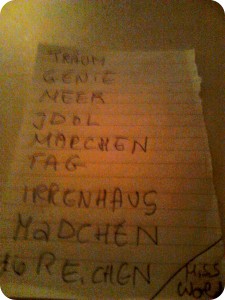 TRAUM
GENIE
MEER
JDOL
MÄRCHEN
TAG
IRRENHAUS
MäDCHEN
REiCHEN
MiSS
WORL